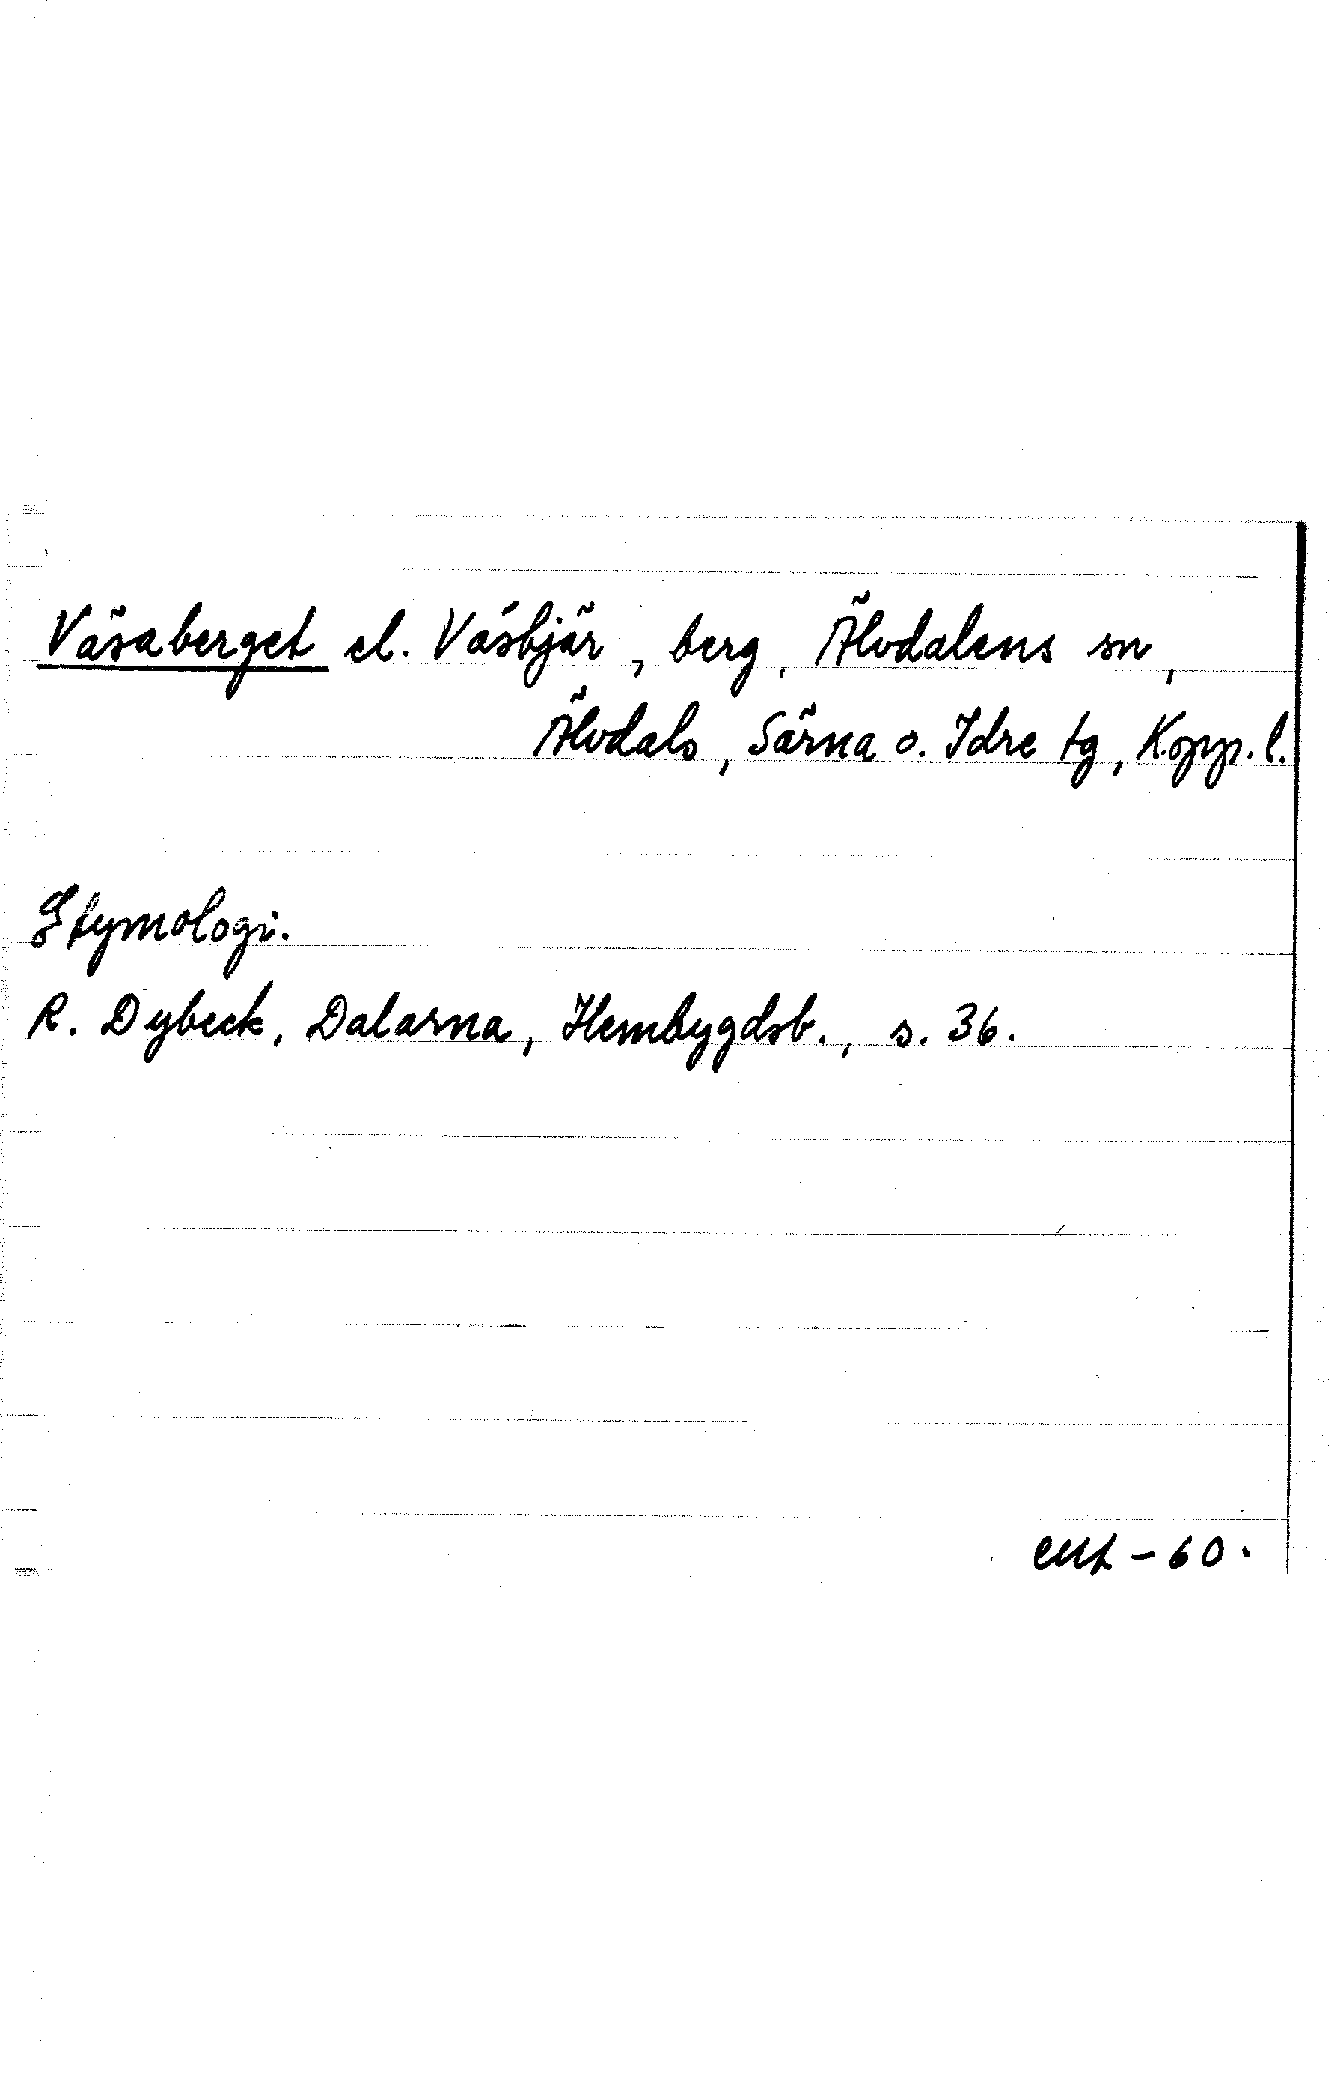 Väsaberget el. Väsbjär, berg, Älvdalens sn,
Älvdals, Särna o. Idre tg, Kopp. l.
Etymologi.
R. Dybeck, Dalarna, Hembygdsb., s. 36.
-60.